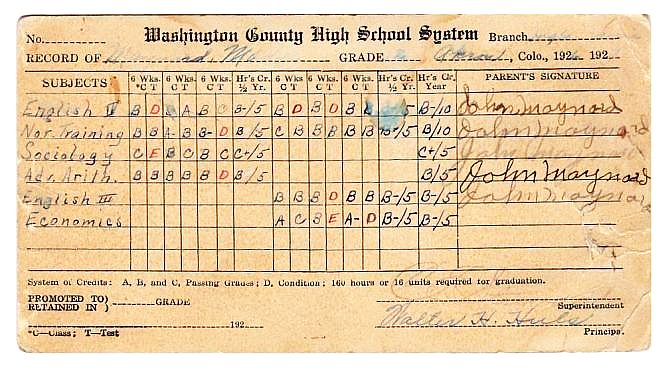 No. Washington County High School System Branch
RECORD OF GRADE Akron, Colo., 192 192
SUBJECTS 6 Wks. *C T 6 Wks. C T 6 Wks. C T Hr's Cr. ½ Yr. 6 Wks. C T 6 Wks. C T 6 Wks. C T Hr's Cr. ½ Yr. Hr's Cr. Year PARENT'S SIGNATURE
English IV B D A B C B-/5 B D B D B /5 B-/10 John Maynard
Nor. Training B B A- B B- D B/5 C B B B B B B+/5 B/10 John Maynard
Sociology C E B C B C C+/5 C+/5 John
Adv. Arith. B B B B B D B/5 B/5 John Maynard
English III B B B D B B B-/5 B-/5 John Maynard
Economics A C B E A- D B-/5 B-/5
System of Credits: A, B, and C, Passing Grades; D, Condition; 160 hours or 16 units required for graduation.
PROMOTED TO) GRADE
RETAINED IN ) Superintendent
192 Walter H.
*C—Class; T—Test Principal